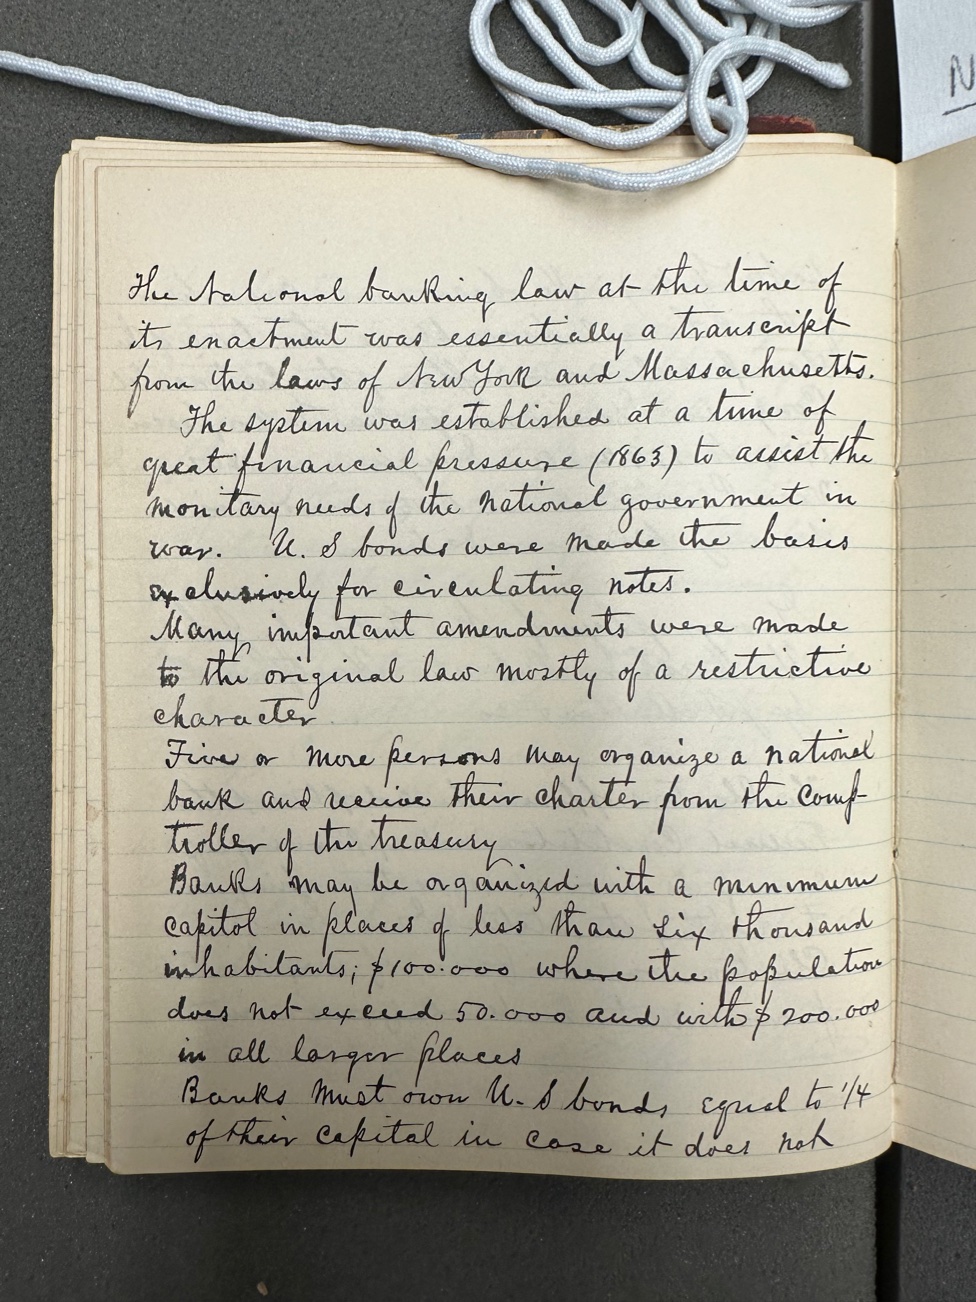 N
The National banking law at the time of
its enactment was essentially a transcript
from the laws of New York and Massachusetts.
The system was established at a time of
great financial pressure (1863) to assist the
monitary needs of the national government in
war. U. S bonds were made the basis
exclusively for circulating notes.
Many important amendments were made
to the original law mostly of a restrictive
character
Five or more persons may organize a national
bank and receive their charter from the Comp-
troller of the treasury
Banks may be organized with a minimum
capitol in places of less than six thousand
inhabitants; $100.000 where the population
does not exceed 50.000 and with $200.000
in all larger places
Banks must own U. S bonds equal to 1/4
of their capital in case it does not